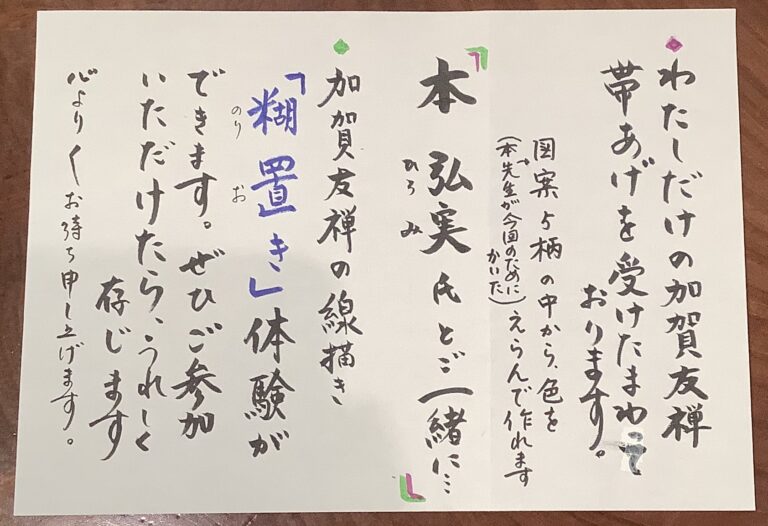 わたしだけの加賀友禅
帯あげを受けたまわって
おります。
図案5柄の中から、色を
(本先生が今回のために
かいた)
えらんで作れます
「本 弘実氏とご一緒に…」
ひろ み
加賀友禅の線描き
「糊置き」体験が
のり お
できます。ぜひご参加
いただけたら、うれしく
存じます
心よりお待ち申し上げます。